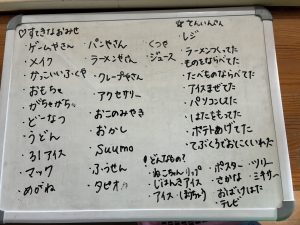 ♡すてきなおみせ
・ゲームやさん
・メイク
・かっこいいふくや
・おもちゃ
・がちゃがちゃ
・どーなつ
・うどん
・31アイス
・マック
・めがね
・パンやさん
・ラーメンやさん
・クレープやさん
・アクセサリー
・おこのみやき
・おかし
・SUUMO
・ふうせん
・タピオカ
・くつや
・ジュース
☆てんいんさん
・レジ
・ラーメンつくってた
・ものをならべてた
・たべものならべてた
・アイスまぜてた
・パソコンしてた
・はたをもってた
・ポテトあげてた
・てぶくろておにくいれた
どんなもの?
・ねこちゃんリップ
・じはんきアイス
・アイス・ほうちょう
・ポスター
・さかな
・おばけはた
・テレビ
・ツリー
・ミキサー